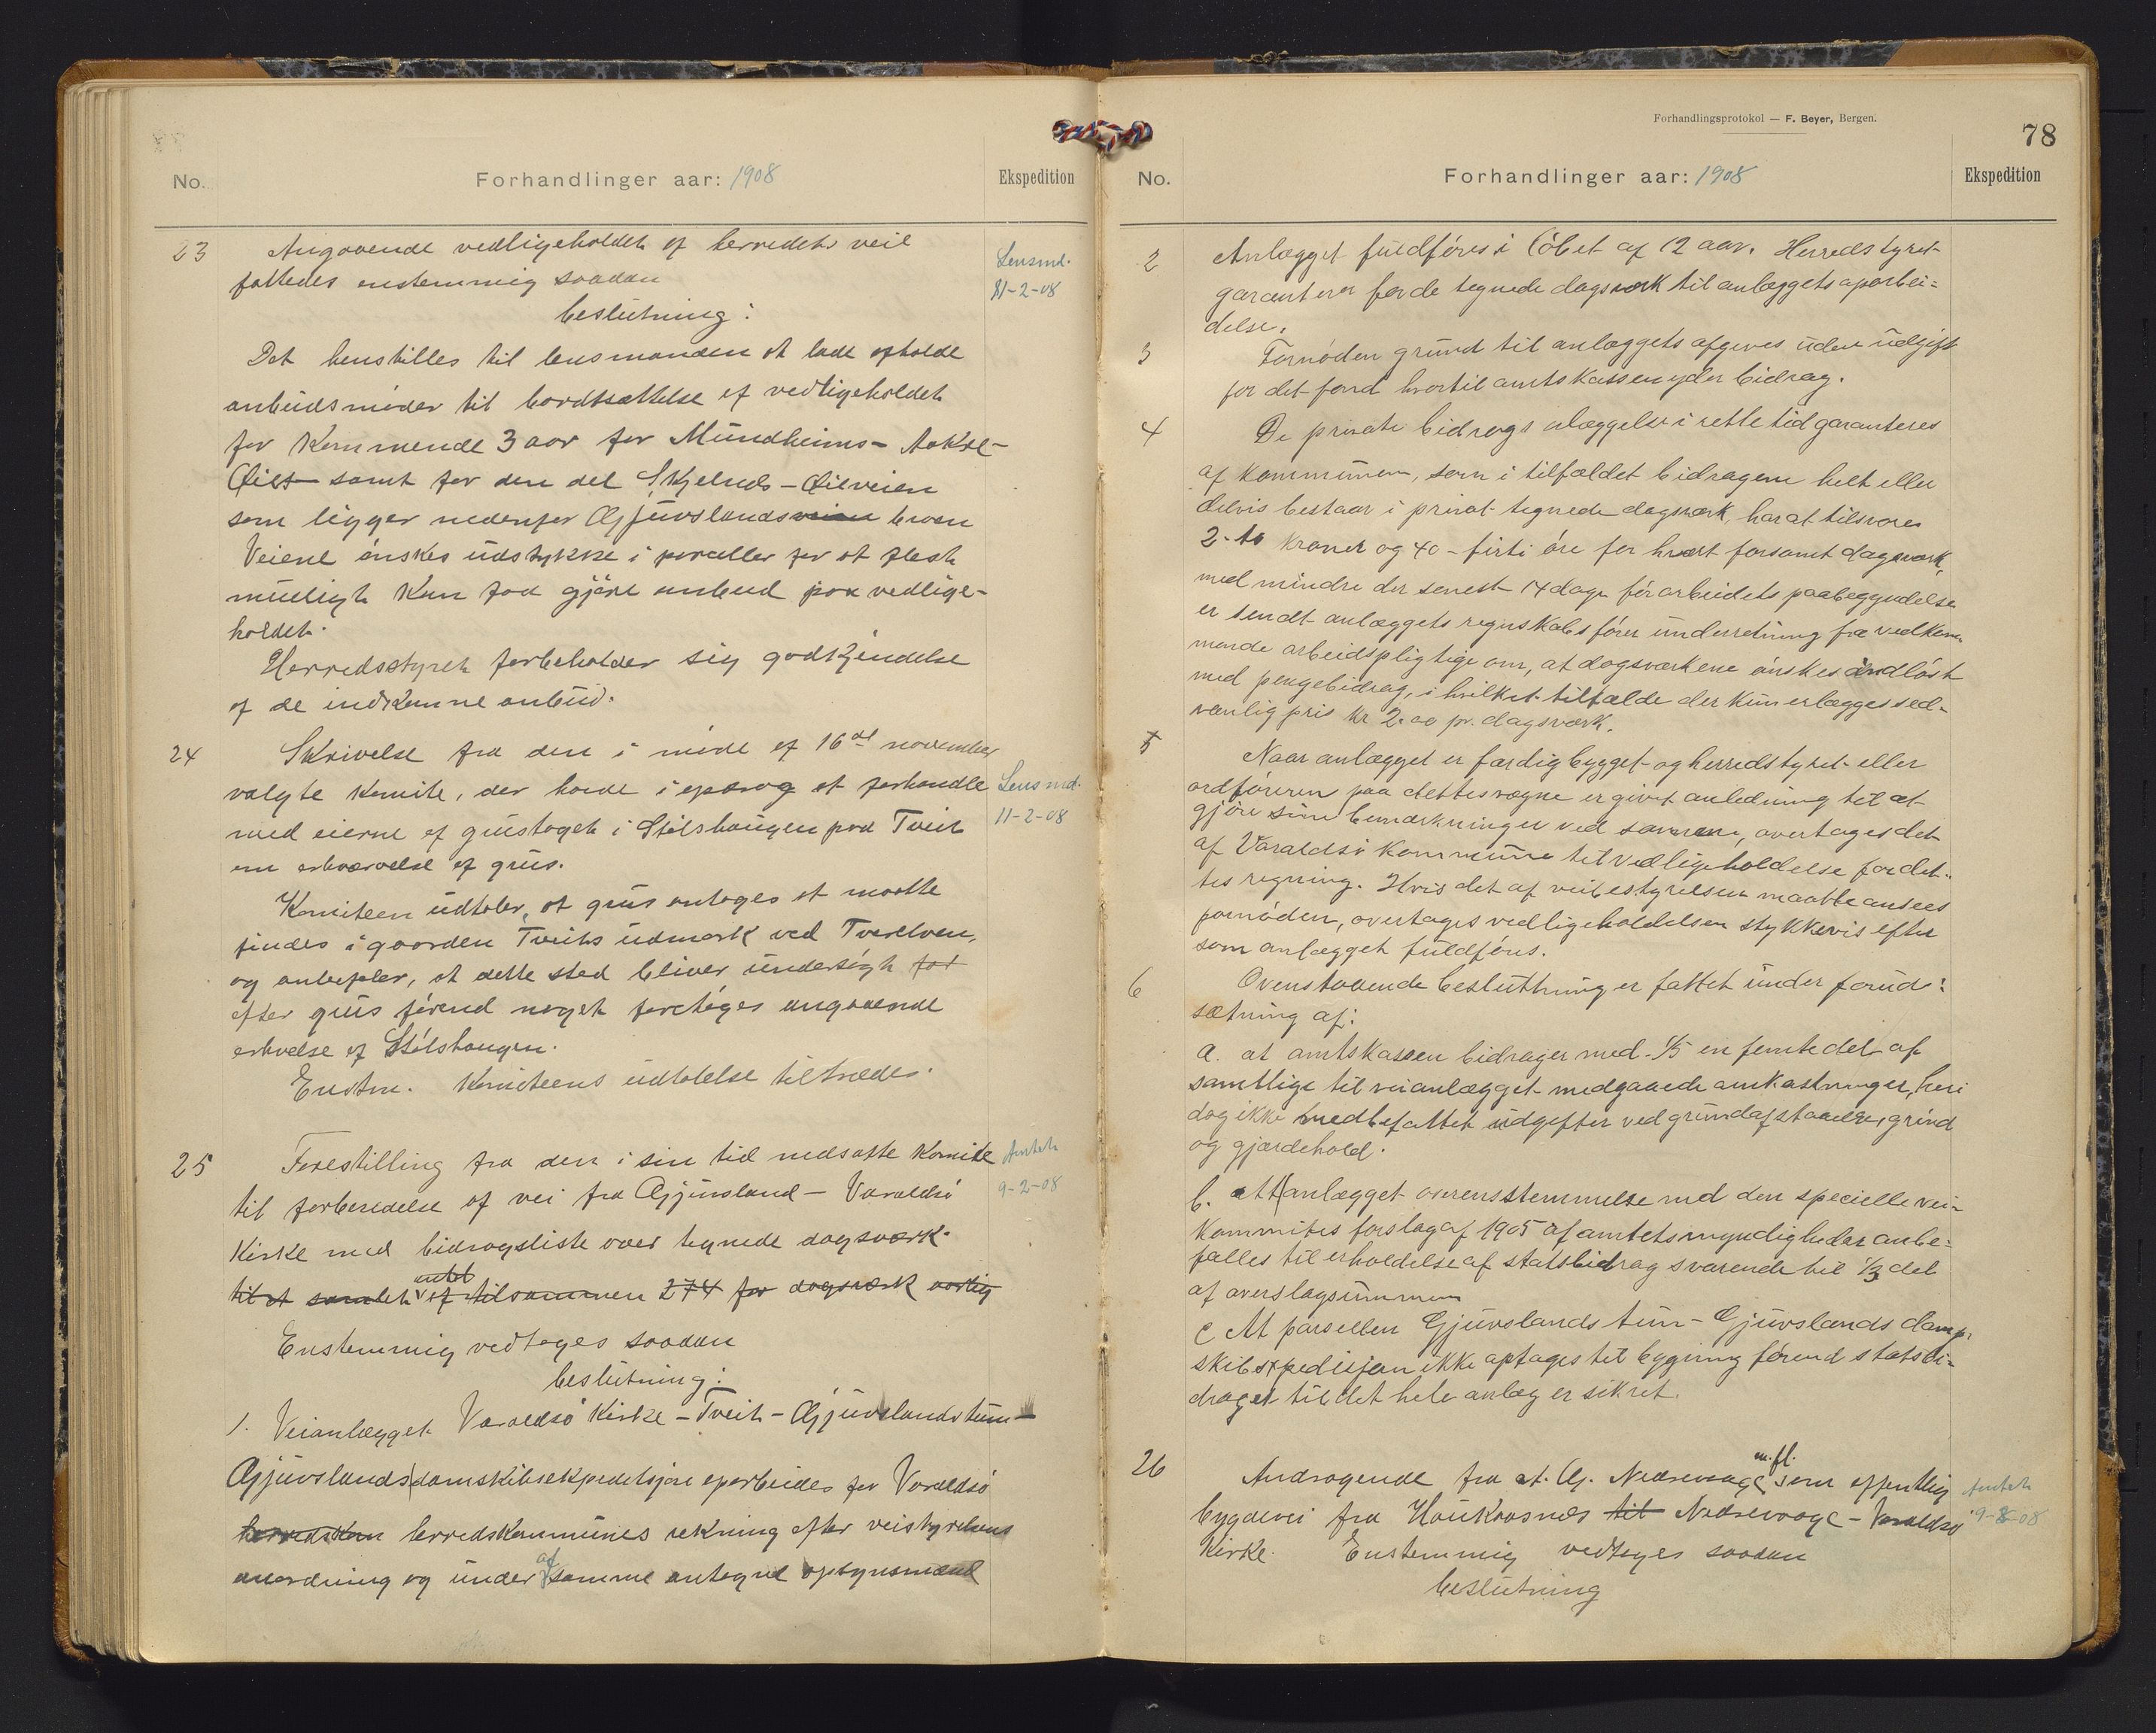 No. Forhandlinger aar: 1908 Ekspedition
23 Angaaende vedligeholdet af herredets veie
fattedes enstemmig saadan
beslutning:
Lensmd.
11-2-08
Det henstilles til lensmanden at lade afholde
anbudsmöder til bordtsættelse af vedligeholdet
for kommende 3 aar for Mundheims- Aakre-
samt for den del
som ligger nedenfor Gjuvslandsveien broen
Veiene önskes udstykke i parceller for at flest
muligt kan faa gjöre anbud paa vedlige-
holdet.
Herredsstyret forbeholder sig godkjendelse
af de indkomne anbud.
24 Skrivelse fra den i möde af 16de november
valgte komite, der havde i opdrag at forhandle
med eierne af grustaget i Stölshaugen paa Tveit
om erhværvelse af grus.
Lensmd.
11-2-08
Komiteen udtaler, at grus antages at maatte
findes i gaarden Tveits udmark ved Tverelven,
og anbefaler, at dette sted bliver undersögt for
efter grus förend noget foretages angaaende
af Stölshaugen.
Enstm. Komiteens udtalelse tiltrædes.
25 Forestilling fra den i sin tid nedsatte komite
til forberedelse af vei fra Gjuvsland - Varaldsö
Kirke med bidragsliste over tegnede dagsværk.
Amtet
9-2-08
antal
til et samlet af tilsammen 274 for dagsværk aarlig
Enstemmig vedtoges saadan
beslutning:
1. Veianlægget Varaldsö Kirke - Tveit - Gjuvslandstun -
Gjuvslands damskibsekpedetsjon oparbeides for Varaldsö
herredskom herredskommunes rekning efter veistyrelsens
anordning og under af samme antagne opsynsmænd
Forhandlingsprotokol — F. Beyer, Bergen.
78
No. Forhandlinger aar: 1908 Ekspedition
2 Anlægget fuldföres i löbet af 12 aar. Herredstyret
garanterer for de tegnede dagsværk til anlæggets aparbei=
delse.
3 Fornöden grund til anlæggets afgives uden udgift
for det fond hvortil amtskassen yder bidrag.
4 De private bidrags i rette tid garanteres
af kommunen, som i tilfældet bidragene helt eller
delvis bestaar i privat tegnede dagsværk, har at tilsvare
2-to kroner og 40 - firti öre for hvært forsömt dagsværk,
med mindre der senest 14 dage för arbeidets paabegyndelse
er sendt anlæggets regnskabsförer underretning fra vedkom-
mende arbeidspligtige om, at dagsværkene önskes indlöst
med pengebidrag, i hvilket tilfælde der kun erlægges sed-
vanlig pris kr 2.00 pr. dagsværk.
5 Naar anlægget er færdigbygget og herredstyret eller
ordföreren paa dettes vægne er givet anledning til at
gjöre sine bemærkninger ved samme, overtages det
af Varaldsö Kommune til vedligeholdelse for det-
tes regning. Hvis det af veibestyrelsen maatte ansees
fornöden, overtages vedligeholdelsen stykkevis efter
som anlægget fuldföres.
6 Ovenstaaende besluttning er fattet under forud=
sætning af:
a. at amtskassen bidrager med 1/5 en femtedel af
samtlige til veianlægget medgaaede omkastninger, heri
dog ikke medbefattet udgifter ved grundafstaaelse, grind
og gjærdehold.
b. at anlægget overensstemmelse med den specielle vei-
Kommites forslag af 1905 af amtets myndigheder anbe=
falles til erholdelse af statsbidrag svarende til 1/3 del
af overslagsummen
c At parsellen Gjuvslands tun - Gjuvslands damp-
skibsexpedisjon ikke optages til bygning förend statsbi-
draget til det hele anlæg er sikret.
m.fl.
26 Andragende fra Nedrevaage som offentlig
bygdevei fra Haukaasnes til Nedrevaage - Varaldsö
Kirke. Enstemmig vedtoges saadan
beslutning
Amtet
9-2-08